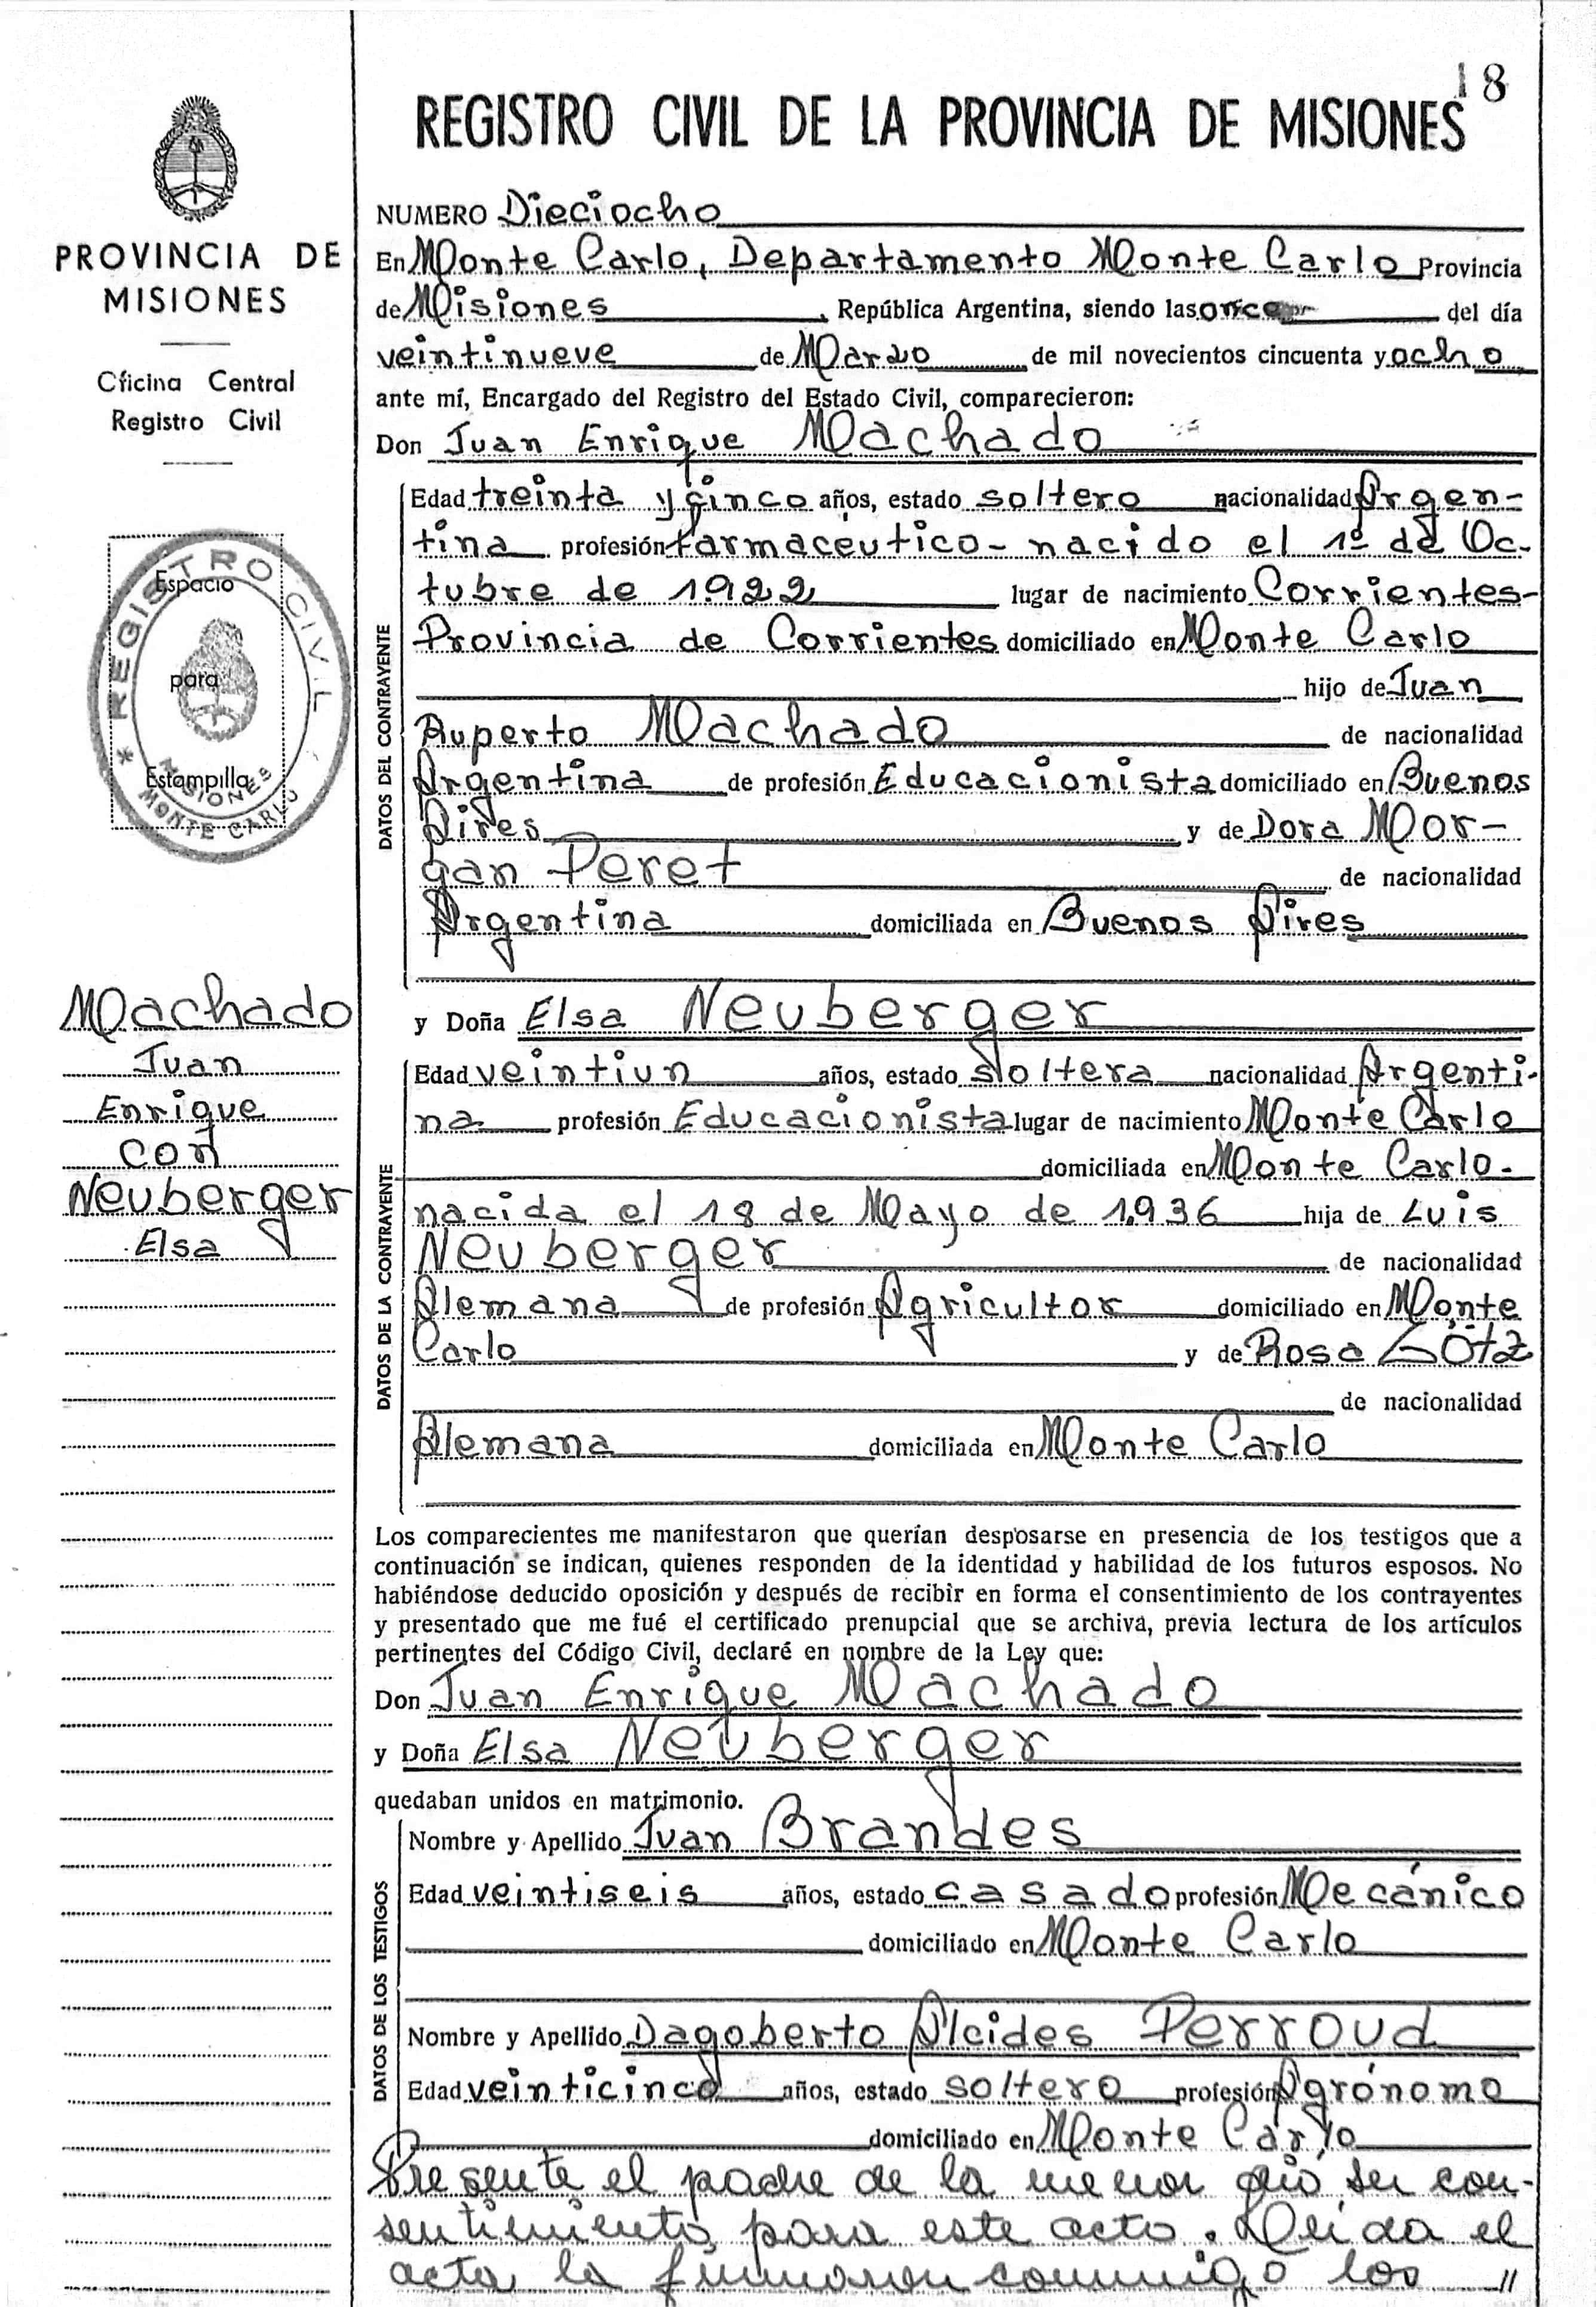 18
REGISTRO CIVIL DE LA PROVINCIA DE MISIONES
PROVINCIA DE
MISIONES
Oficina Central
Registro Civil
Espacio
para
Estampilla
* REGISTRO CIVIL
MISIONES
MONTE CARLO
Machado
Juan
Enrique
con
Neuberger
Elsa
NUMERO Dieciocho
En Monte Carlo, Departamento Monte Carlo Provincia
de Misiones, República Argentina, siendo las once del día
veintinueve de Marzo de mil novecientos cincuenta y ocho
ante mí, Encargado del Registro del Estado Civil, comparecieron:
Don Juan Enrique Machado
DATOS DEL CONTRAYENTE
Edad treinta y cinco años, estado soltero nacionalidad Argen-
tina profesión farmaceutico - nacido el 1º de Oc-
tubre de 1922 lugar de nacimiento Corrientes-
Provincia de Corrientes domiciliado en Monte Carlo
hijo de Juan
Ruperto Machado de nacionalidad
Argentina de profesión Educacionista domiciliado en Buenos
Aires y de Dora Mor-
gan Peret de nacionalidad
Argentina domiciliada en Buenos Aires
y Doña Elsa Neuberger
DATOS DE LA CONTRAYENTE
Edad veintiun años, estado soltera nacionalidad Argenti-
na profesión Educacionista lugar de nacimiento Monte Carlo
domiciliada en Monte Carlo-
nacida el 18 de Mayo de 1.936 hija de Luis
Neuberger de nacionalidad
Alemana de profesión Agricultor domiciliado en Monte
Carlo y de Rosa Götz
de nacionalidad
Alemana domiciliada en Monte Carlo
Los comparecientes me manifestaron que querían desposarse en presencia de los testigos que a
continuación se indican, quienes responden de la identidad y habilidad de los futuros esposos. No
habiéndose deducido oposición y después de recibir en forma el consentimiento de los contrayentes
y presentado que me fué el certificado prenupcial que se archiva, previa lectura de los artículos
pertinentes del Código Civil, declaré en nombre de la Ley que:
Don Juan Enrique Machado
y Doña Elsa Neuberger
quedaban unidos en matrimonio.
DATOS DE LOS TESTIGOS
Nombre y Apellido Juan Brandes
Edad veintiseis años, estado casado profesión Mecánico
domiciliado en Monte Carlo
Nombre y Apellido Dagoberto Alcides Perroud
Edad veinticinco años, estado soltero profesión Agrónomo
domiciliado en Monte Carlo
Presente el padre de la menor dió su con-
sentimiento para este acto. Leída el
acta la firmaron conmigo los //